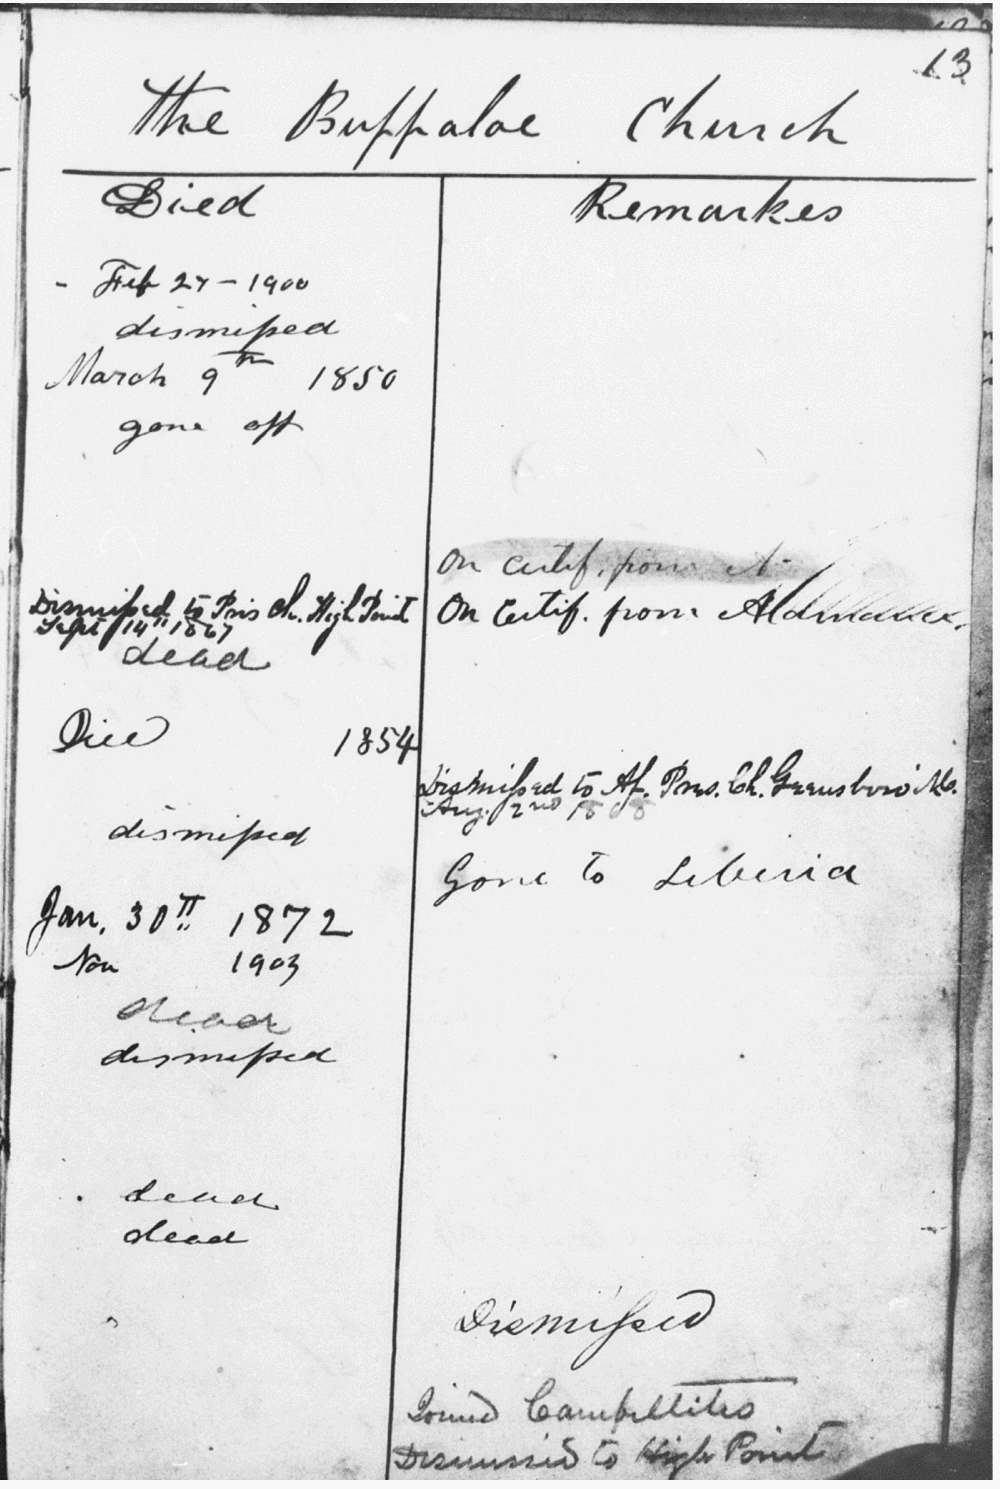 13
The Buffaloe Church
Died Remarkes
- Feb 27 - 1900
dismissed
March 9th 1850
gone off
On certif. from A
Dismissed to Pris Ch. High Point On Certif. from
Sept 14th 1867
dead
Died 1854
Dismissed to Af. Pres. Ch. Greensboro' N.C.
Aug. 2nd 18 8
dismissed
Gone to Liberia
Jan. 30th 1872
Nov 1903
dead
dismissed
dead
dead
Dismissed
Joined Campbellites
Dismissed to High Point